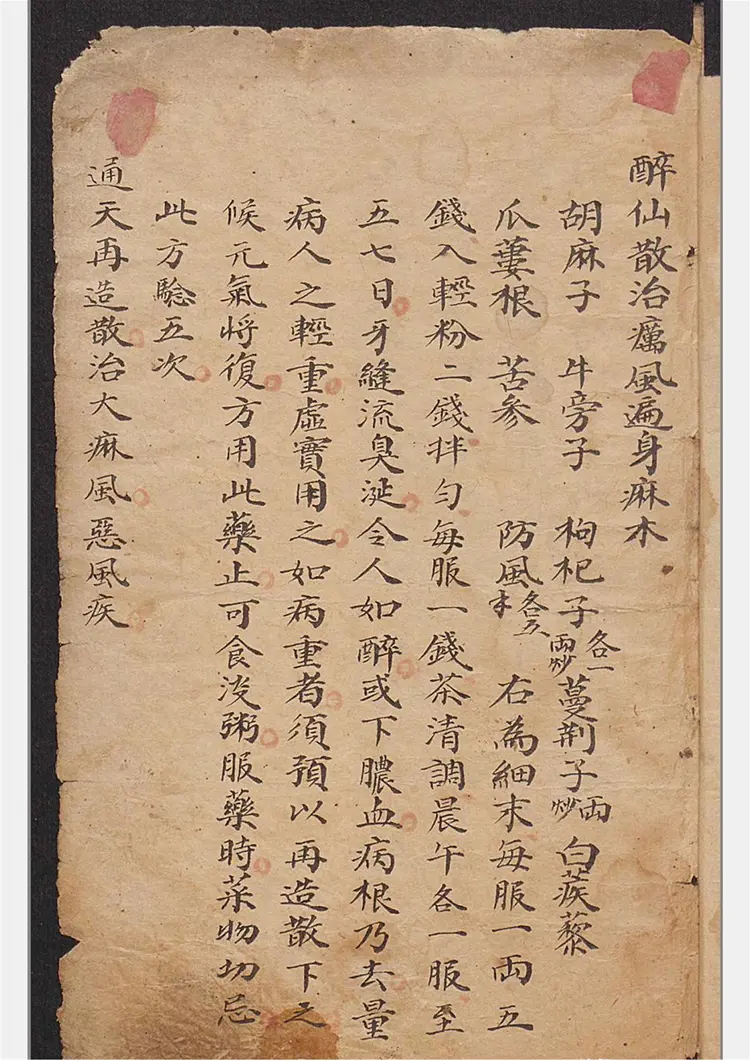 醉仙散治癘風遍身麻木
胡麻子 牛旁子 枸杞子各一兩炒蔓荆子兩炒 白蒺藜
瓜蔞根 苦参 防風各五 右為細末每服一兩五
錢入輕粉二錢拌匀每服一錢茶清調晨午各一服至
五七日牙縫流臭涎令人如醉或下膿血病根乃去量
病人之輕重虛實用之如病重者須預以再造散下之
候元氣將復方用此藥止可食淡粥服藥時菜物切忌
此方驗五次
通天再造散治大麻風惡風疾